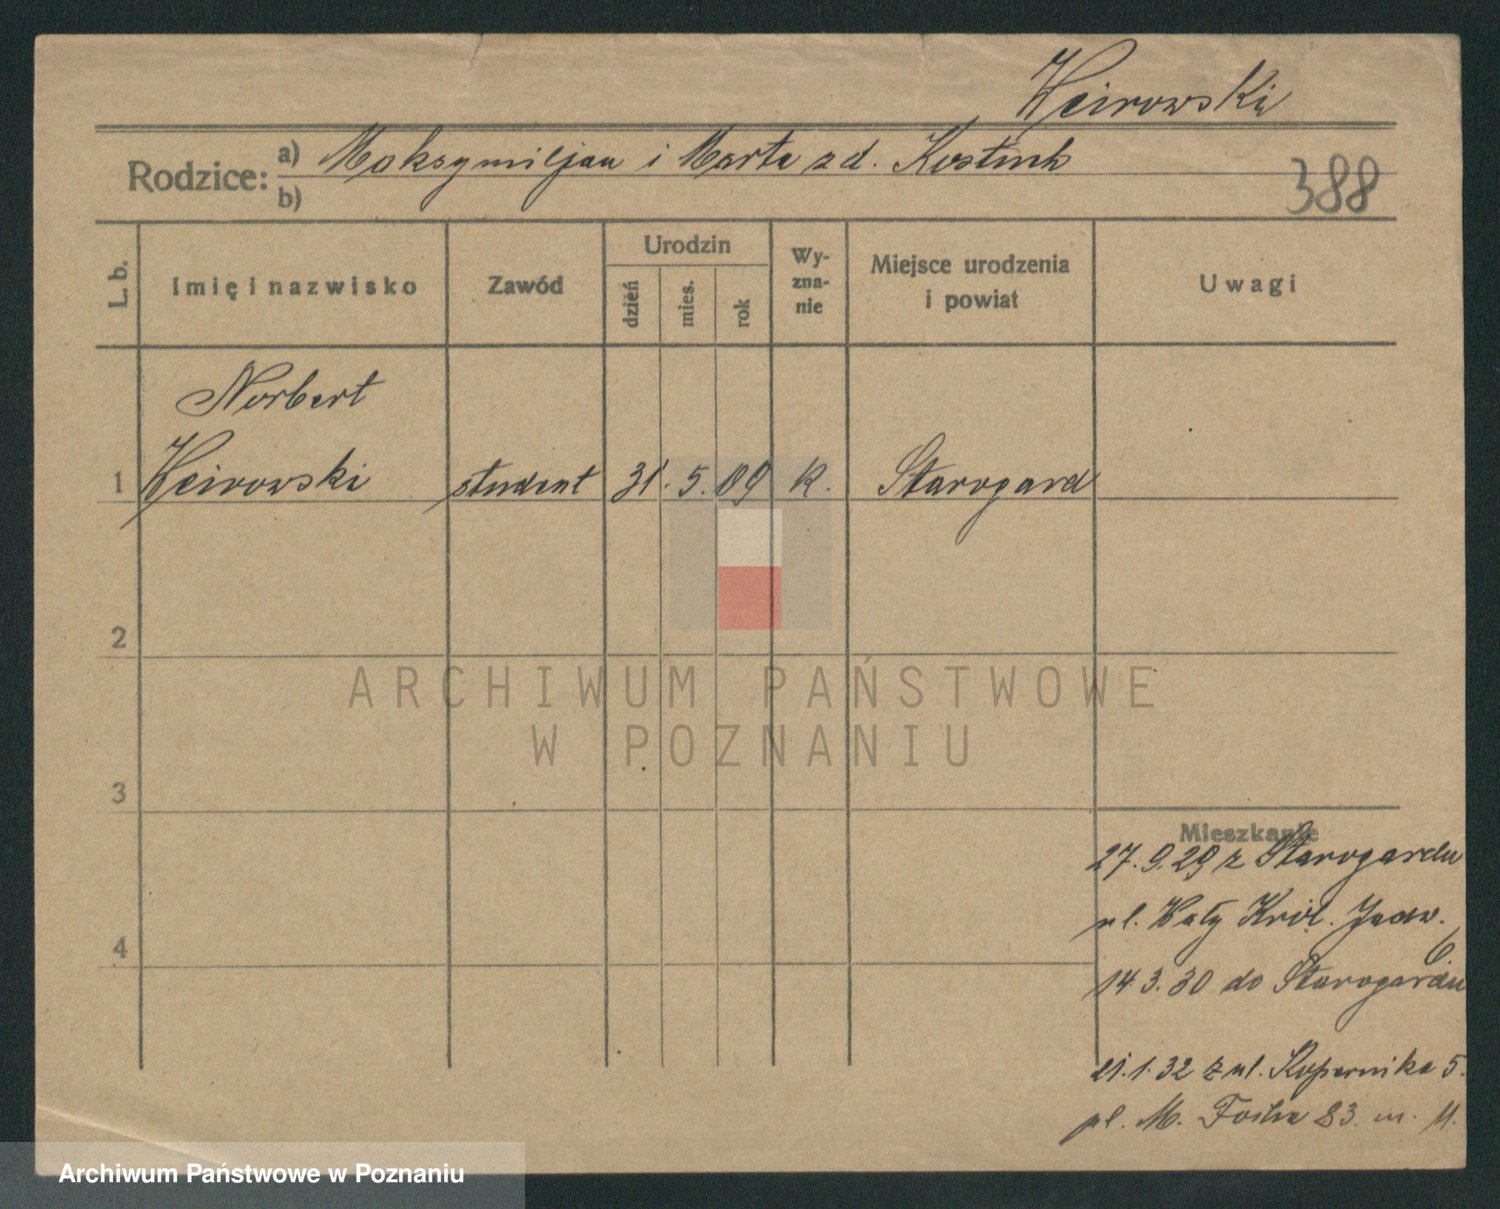 Weirowski
Rodzice: a) Maksymiljan i Marta z d.
b)
388
L. b. Imię i nazwisko Zawód Urodzin dzień mies. rok Wyznanie Miejsce urodzenia i powiat Uwagi
Norbert
1 Weirowski student 31. 5. 09 k. Starogard
2
ARCHIWUM PAŃSTWOWE
W POZNANIU
3
Mieszkanie
27.9.29 z Starogardu
ul. Wały Król. Jadw.
4
6
14.3.30 do Starogardu
21.1.32 z ul. Kopernika 5.
pl. M. Focha 83. m. 11.
Archiwum Państwowe w Poznaniu